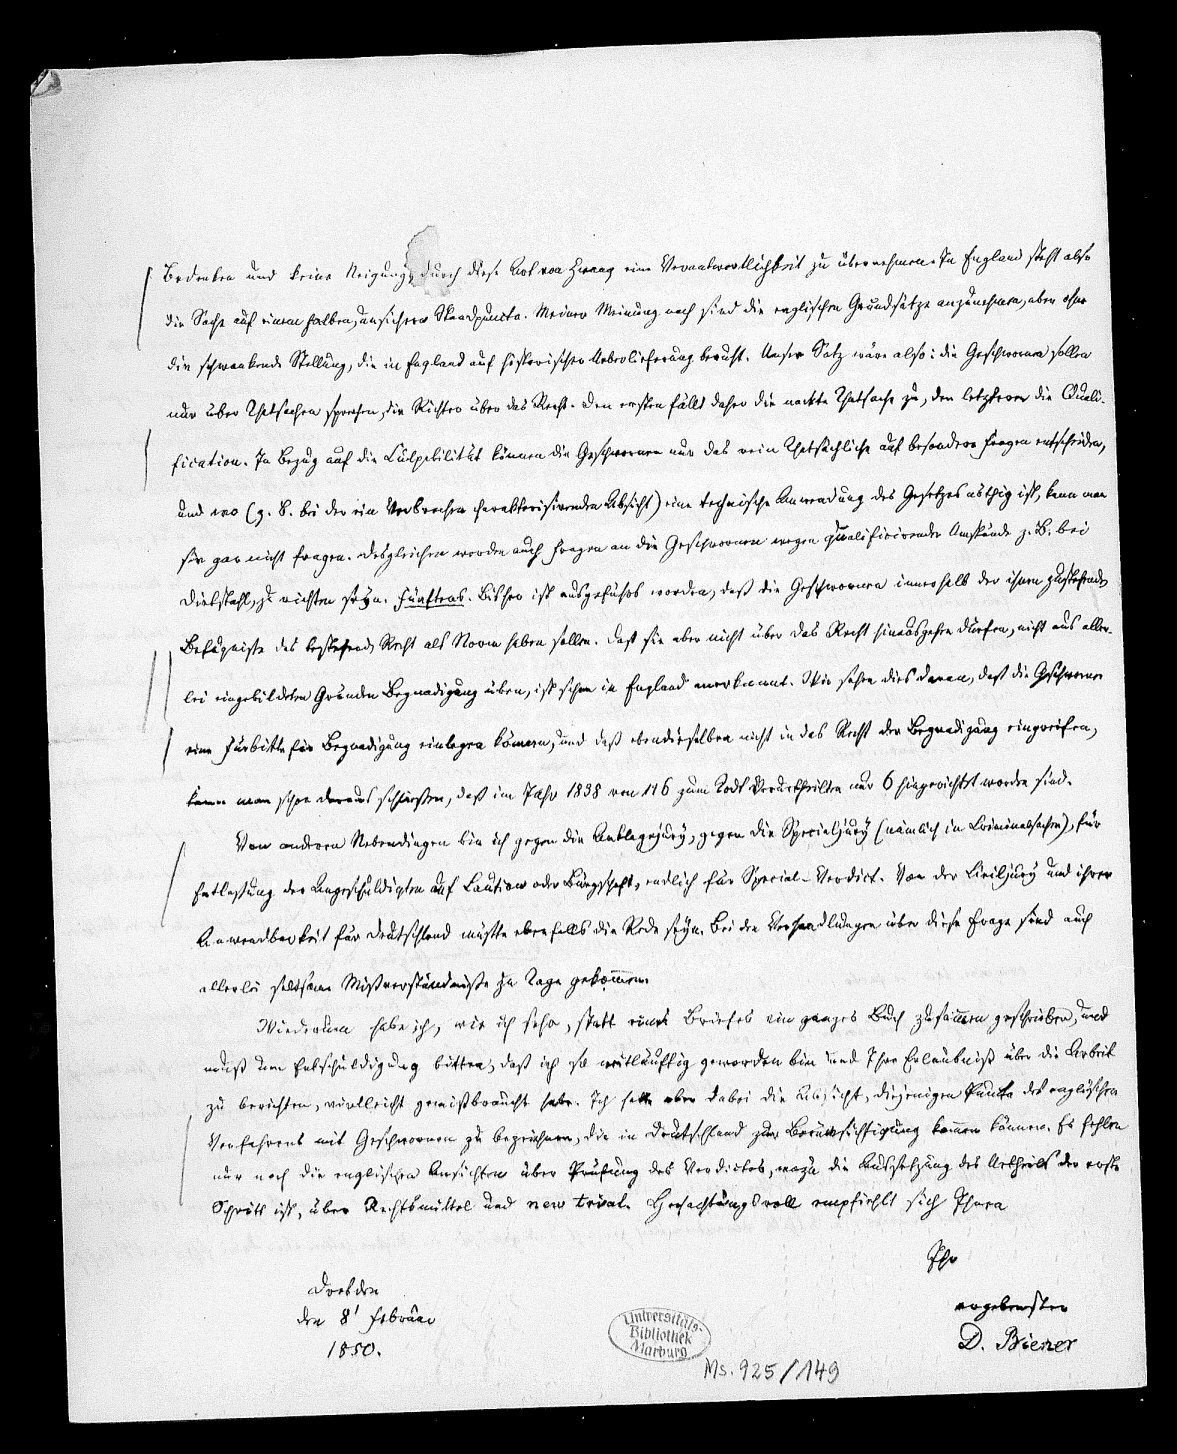 Bedenken und keine Neigung, durch diese Art von Zwang eine Verantwortlichkeit zu übernehmen. In England steht also
die Sache auf einem halben, unsichern Standpuncte. Meiner Meinung nach sind die englischen Grundsätze anzunehmen, aber ohne
die schwankende Stellung, die in England auf historischer Ueberlieferung beruht. Unser Satz wäre also: die Geschwornen sollen
nur über Thatsachen sprechen, die Richter über das Recht. Den ersten fällt daher die nackte Thatsache zu, den letzteren die Quali-
fication. In Bezug auf die Culpabilität können die Geschwornen nur das rein Thatsächliche auf besondere Fragen entscheiden,
und wo (z. B. bei der ein Verbrechen charakterisirenden Absicht) eine technische Anwendung des Gesetzes nöthig ist, kann man
sie gar nicht fragen. Desgleichen werden auch Fragen an die Geschwornen wegen qualificirender Umstände z. B. bei
Diebstahl, zu richten seyn. Fünftens. Bisher ist ausgeführt worden, daß die Geschwornen innerhalb der ihnen zustehenden
Befugnisse das bestehende Recht als Norm haben sollen. Daß sie aber nicht über das Recht hinausgehen dürfen, nicht aus aller-
lei eingebildeten Gründen Begnadigung üben, ist schon in England anerkannt. Wir sehen dies daran, daß die Geschwornen
eine Fürbitte für Begnadigung einlegen können, und daß ebendieselben nicht in das Recht der Begnadigung eingreifen,
kann man schon daraus schliessen, daß im Jahr 1838 von 116 zum Tode Verurtheilten nur 6 hingerichtet worden sind.
Von anderen Nebendingen bin ich gegen die Anklagejury, gegen die Specialjury (nämlich in Criminalsachen), für
Entlassung der Angeschuldigten auf Caution oder Bürgschaft, endlich für Special-Verdict. Von der Civiljury und ihrer
Anwendbarkeit für Deutschland müßte ebenfalls die Rede seyn. Bei den Verhandlungen über diese Frage sind auch
allerlei seltsame Mißverständnisse zu Tage gekommen.
Wiederum habe ich, wie ich sehe, statt eines Briefes ein ganzes Buch zusammen geschrieben, und
muß um Entschuldigung bitten, daß ich so weitläuftig geworden bin und Ihre Erlaubniß über die Arbeit
zu berichten, vielleicht gemißbraucht habe. Ich hatte aber dabei die Absicht, diejenigen Puncte des englischen
Verfahrens mit Geschwornen zu bezeichnen, die in Deutschland zur Berücksichtigung kommen können. Es fehlen
nur noch die englischen Ansichten über Prüfung des Verdictes, wozu die Aussetzung des Urtheils der erste
Schritt ist, über Rechtsmittel und new trial. Hochachtungsvoll empfiehlt sich Ihnen
Ihr
ergebenster
D. Biener
Dresden
den 8' Februar
1850.
Universitäts-
Bibliothek
Marburg
Ms. 925/149